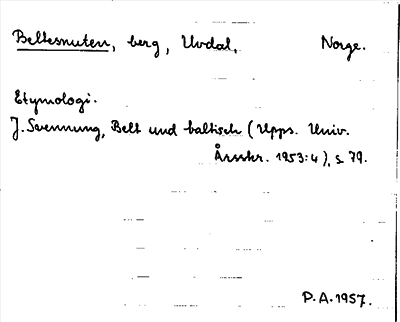 Beltesnuten, berg, Uvdal, Norge.
Etymologi.
J. Svennung, Belt und baltisch (Upps. Univ.
Årsskr. 1953:4), s. 79.
P.A. 1957.